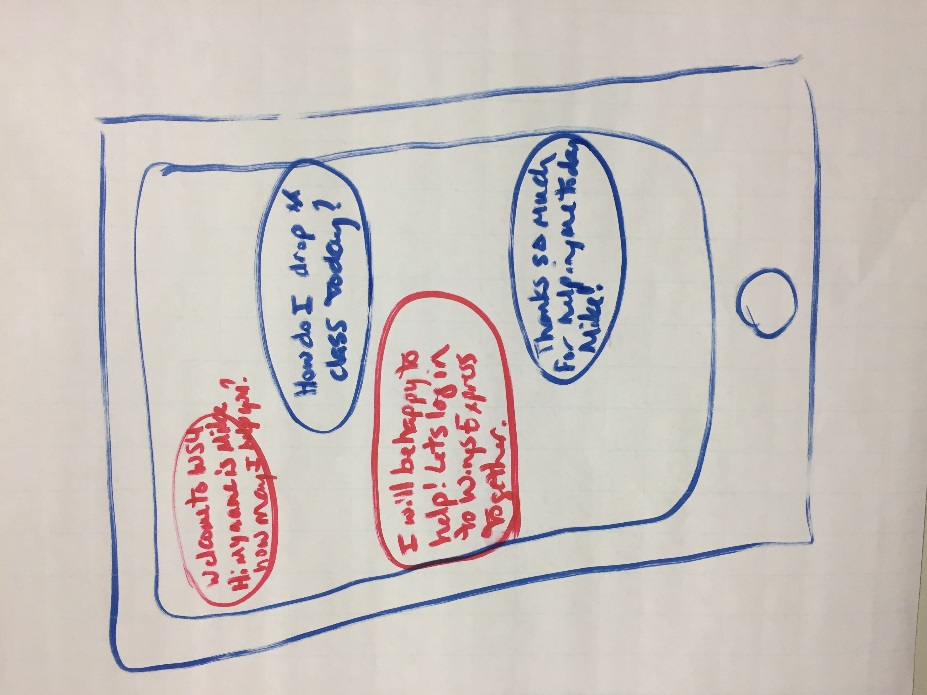 Welcome to WSU
Hi my name is Mike
how may I help you?
How do I drop a
class today?
I will be happy to
help! Lets log in
to Wings Express
together.
Thanks so much
For helping me today
Mike!